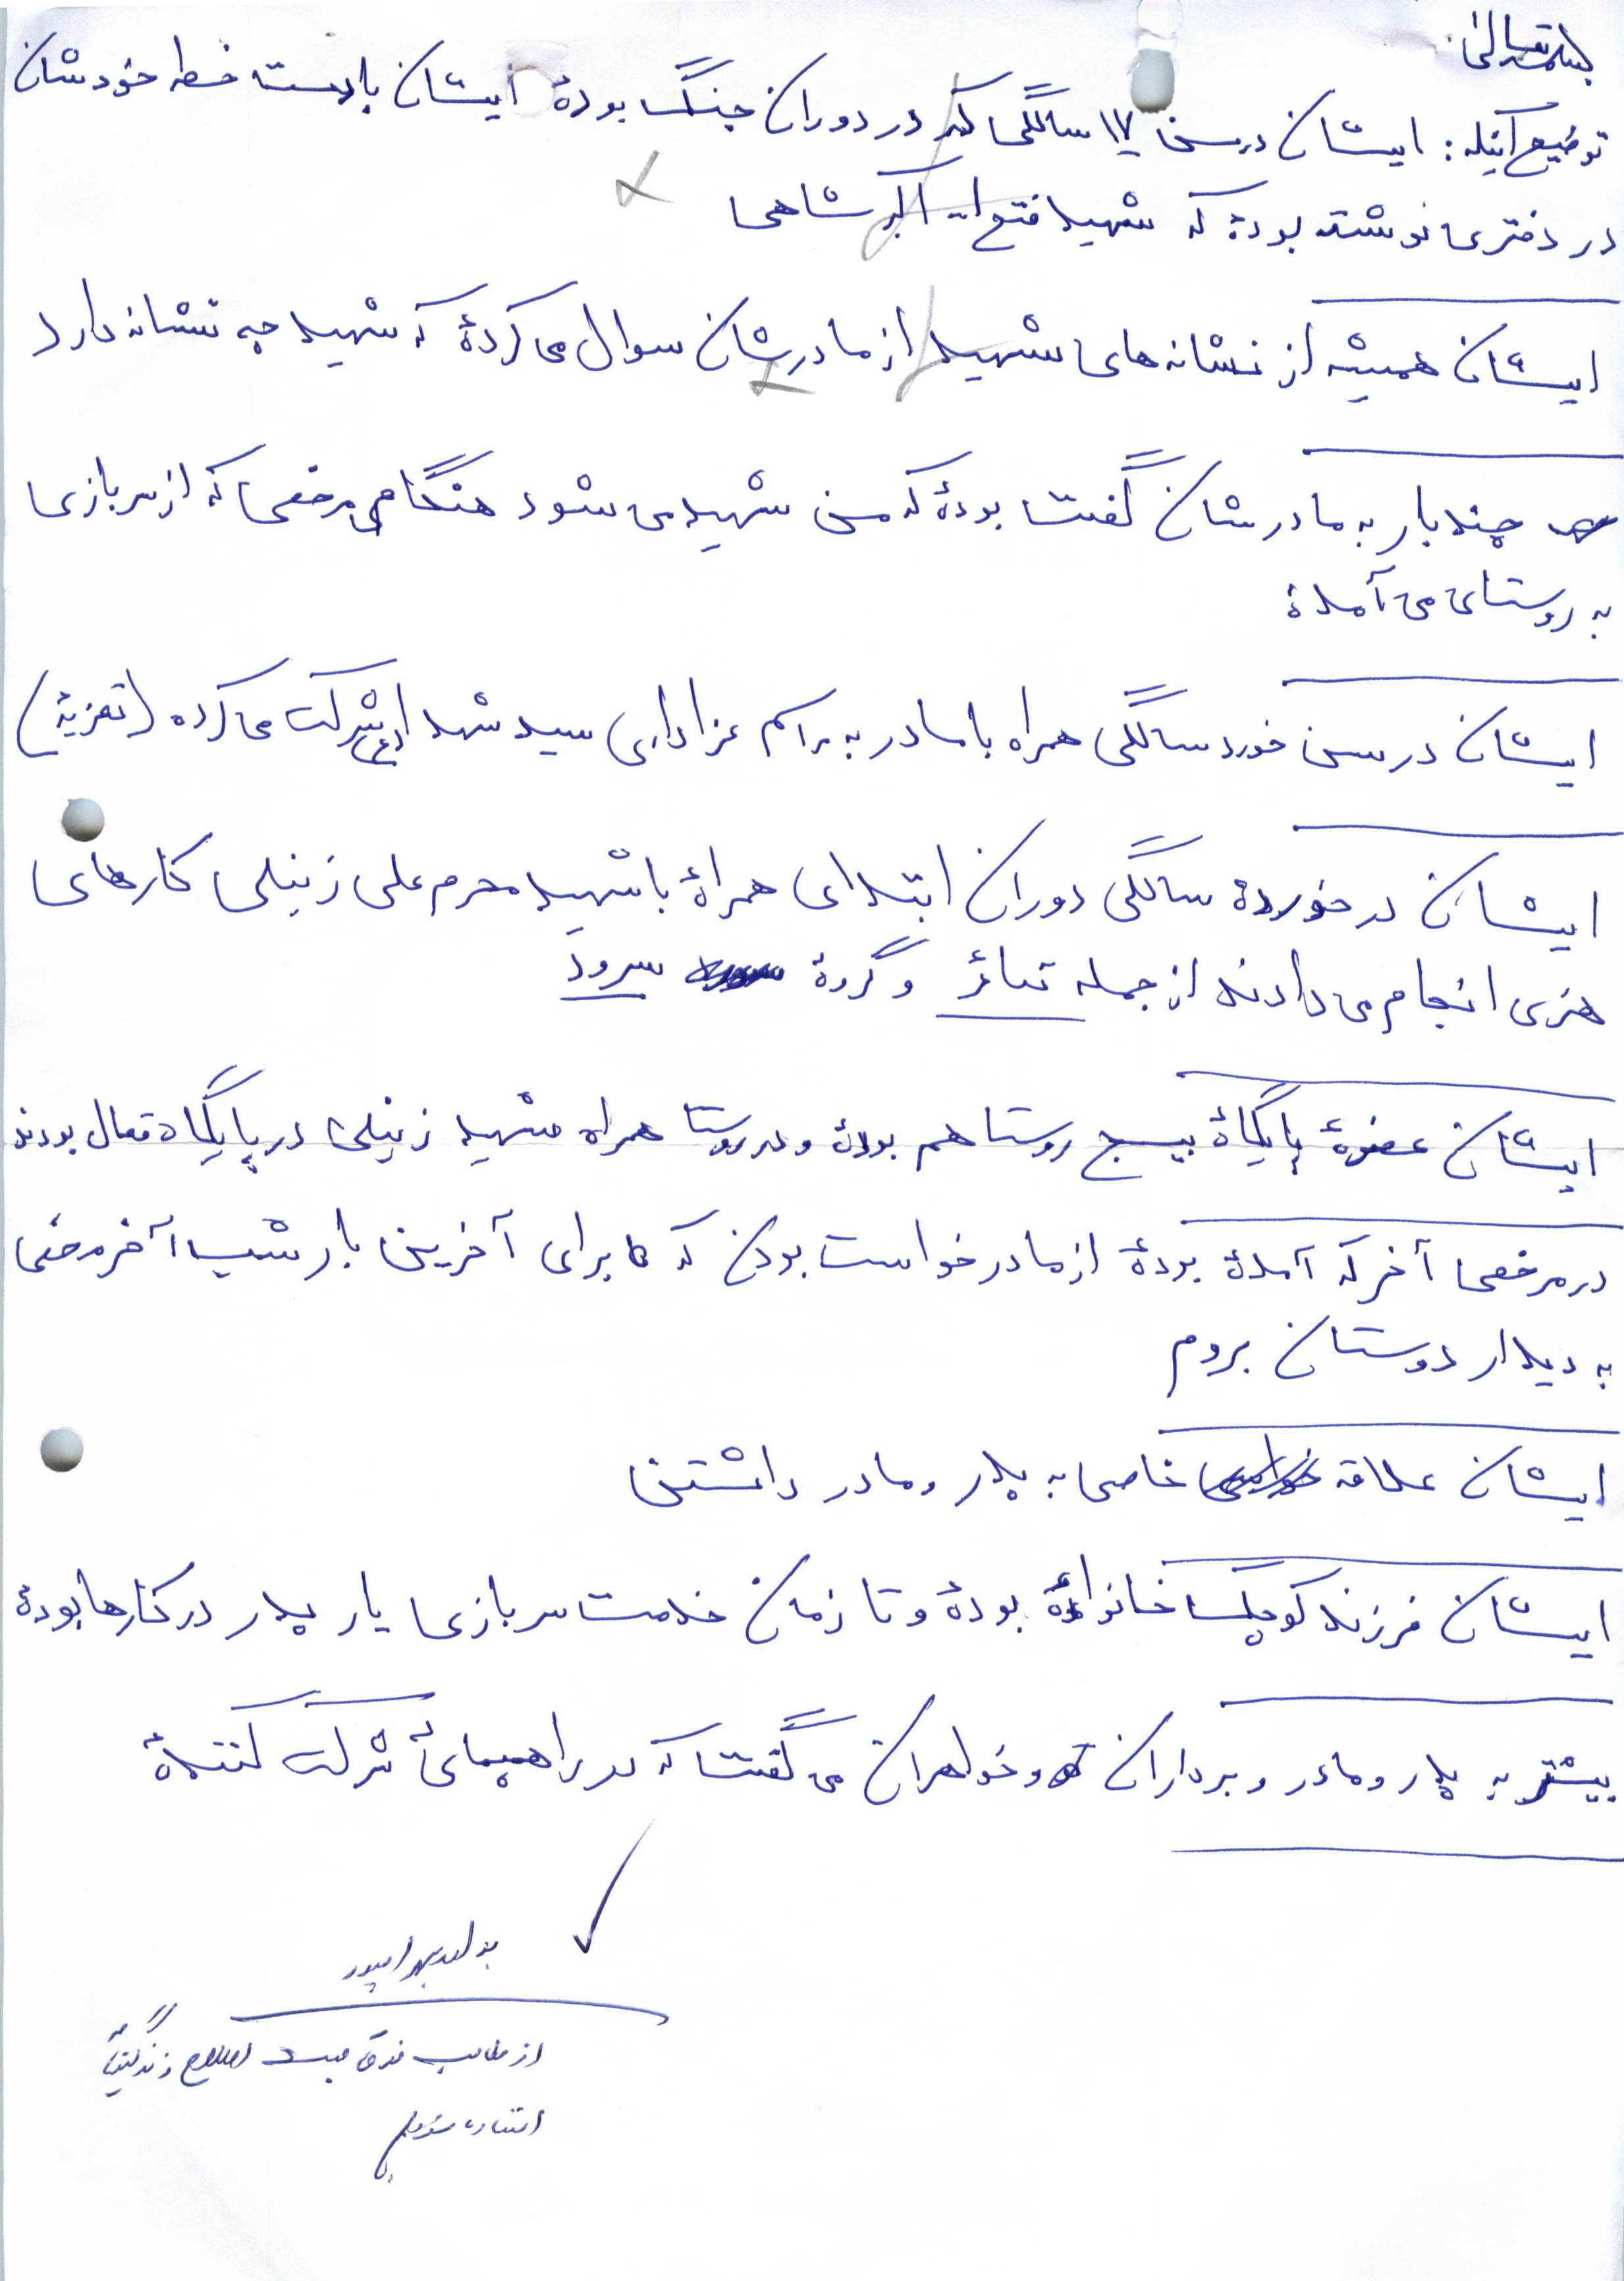 بسمه تعالی
توضیع اینکه : ایشان در سن ۱۷ سالگی که در دوران جنگ بودهٔ ایشان با دست خط خودشان
در دفتری نوشته بودهٔ که شهید فتح اله اکبر شاهی
ایشان همیشه از نشانه های شهید از مادرشان سوال می کردهٔ که شهید چه نشانه دارد
چند بار به مادرشان گفت بودهٔ که من شهید می شود هنگام مرخصی که از سربازی
به روستای می آمدهٔ
ایشان در سن خورد سالگی همراه با مادر به مراسم عزاداری سید شهدا (ع) شرکت می کرده (تعزیهٔ)
ایشان در خوردهٔ سالگی دوران ابتدای همراهٔ با شهید محرم علی زینلی کارهای
هنری انجام می دادند از جمله تئاتر و گروهٔ سرود
ایشان عضوهٔ پایگاهٔ بسیج روستا هم بودهٔ و در روستا همراه شهید زینلی در پایگاه فعال بودند
در مرخصی آخر که آمدهٔ بودهٔ از مادر خواست بودن که برای آخرین بار شب آخر مرخصی
به دیدار دوستان بروم
ایشان علاقه خاصی به پدر و مادر داشتن
ایشان فرزند کوچک خانوادهٔ بودهٔ و تا زمان خدمت سربازی یار پدر در کارها بودهٔ
بیشتر به پدر و مادر و برداران و خواهران می گفت که در راهپیمای شرکت کنندهٔ
از مطالب فوق جهت اصلاح
استفاده شود